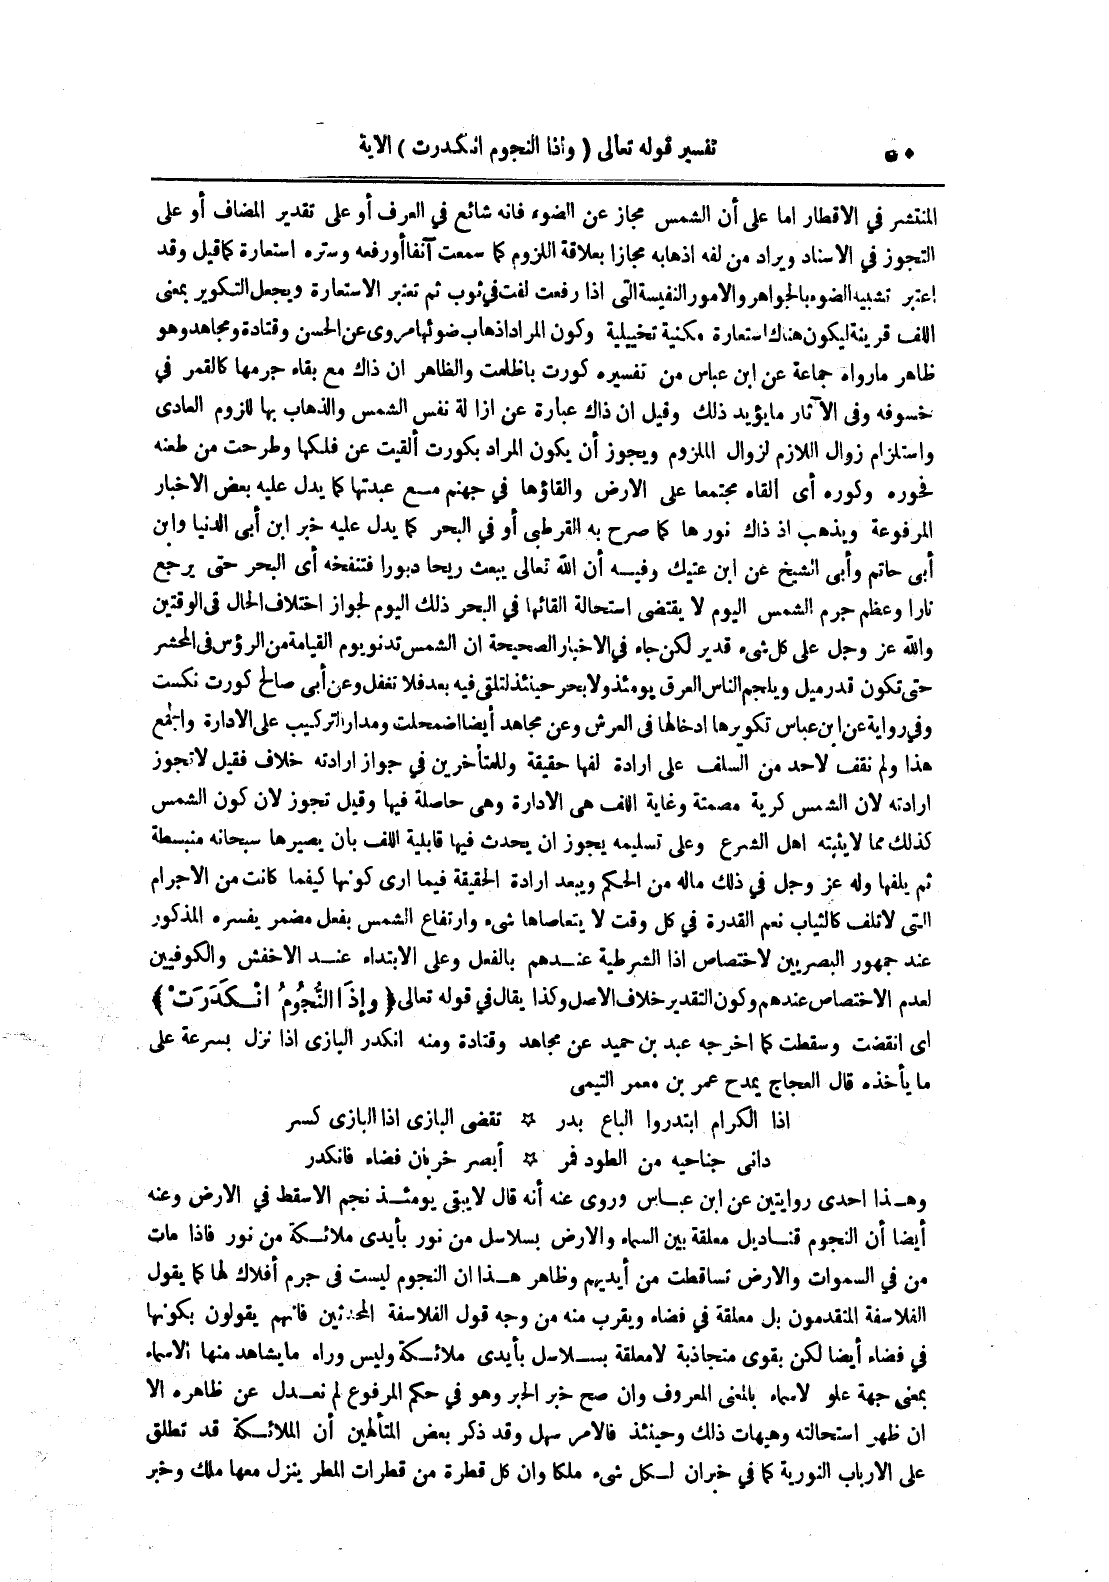 ٥٠ تفسير قوله تعالى ( واذا النجوم انكدرت ) الاية
المنتشر في الاقطار اما على أن الشمس مجاز عن الضوء فانه شائع في العرف أو على تقدير المضاف أو على
التجوز في الاسناد ويراد من لفه اذهابه مجازا بعلاقة اللزوم كما سمعت آنفا أو رفعه وستره استعارة كما قيل وقد
اعتبر تشبيه الضوء بالجواهر والامور النفيسة التى اذا رفعت لفت في ثوب ثم تعتبر الاستعارة ويجعل التكوير بمعنى
اللف قرينة ليكون هناك استعارة مكنية تخييلية وكون المراد اذهاب ضوئها مروى عن الحسن وقتادة ومجاهد وهو
ظاهر مارواه جماعة عن ابن عباس من تفسيره كورت باظلمت والظاهر ان ذاك مع بقاء جرمها كالقمر في
خسوفه وفى الآثار مايؤيد ذلك وقيل ان ذاك عبارة عن ازالة نفس الشمس والذهاب بها للزوم العادى
واستلزام زوال اللازم لزوال الملزوم ويجوز أن يكون المراد بكورت ألقيت عن فلكها وطرحت من طعنه
فحوره وكوره أى ألقاه مجتمعا على الارض والقاؤها في جهنم مـع عبدتها كما يدل عليه بعض الاخبار
المرفوعة ويذهب اذ ذاك نورها كما صرح به القرطبى أو في البحر كما يدل عليه خبر ابن أبى الدنيا وابن
أبى حاتم وأبى الشيخ عن ابن عتيك وفيـه أن الله تعالى يبعث ريحا دبورا فتنفخه أى البحر حتى يرجع
نارا وعظم جرم الشمس اليوم لا يقتضى استحالة القائها في البحر ذلك اليوم لجواز اختلاف الحال فى الوقتين
والله عز وجل على كل شىء قدير لكن جاء في الاخبار الصحيحة ان الشمس تدنو يوم القيامة من الرؤس فى المحشر
حتى تكون قدر ميل ويلجم الناس العرق يومئذ ولا بحر حينئذ لتلقى فيه بعد فلا تغفل وعن أبى صالح كورت نكست
وفي رواية عن ابن عباس تكويرها ادخالها فى العرش وعن مجاهد أيضا اضمحلت ومدار التركيب على الادارة والجمع
هذا ولم نقف لاحد من السلف على ارادة لفها حقيقة وللمتأخرين في جواز ارادته خلاف فقيل لا تجوز
ارادته لان الشمس كرية مصمتة وغاية اللف هى الادارة وهى حاصلة فيها وقيل تجوز لان كون الشمس
كذلك مما لايثبته اهل الشرع وعلى تسليمه يجوز ان يحدث فيها قابلية اللف بان يصيرها سبحانه منبسطة
ثم يلفها وله عز وجل في ذلك ماله من الحكم ويبعد ارادة الحقيقة فيما ارى كونها كيفما كانت من الاجرام
التى لاتلف كالثياب نعم القدرة في كل وقت لا يتعاصاها شىء وارتفاع الشمس بفعل مضمر يفسره المذكور
عند جمهور البصريين لاختصاص اذا الشرطية عنـدهم بالفعل وعلى الابتداء عنـد الاخفش والكوفيين
لعدم الاختصاص عندهم وكون التقدير خلاف الاصل وكذا يقال في قوله تعالى ﴿ وَإِذَا النُّجُومُ انْـكَدَرَتْ ﴾
اى انقضت وسقطت كما اخرجه عبد بن حميد عن مجاهد وقتادة ومنه انكدر البازى اذا نزل بسرعة على
ما يأخذه قال العجاج يمدح عمر بن معمر التيمى
اذا الكرام ابتدروا الباع بدر ☆ تقضى البازى اذا البازى كسر
دانى جناحيه من الطود فمر ☆ أبصر خربان فضاء فانكدر
وهـذا احدى روايتين عن ابن عبـاس وروى عنه أنه قال لا يبقى يومئـذ نجم الا سقط في الارض وعنه
أيضا أن النجوم قنـاديل معلقة بين السماء والارض بسلاسل من نور بأيدى ملائـكة من نور فاذا مات
من في السموات والارض تساقطت من أيديهم وظاهر هـذا ان النجوم ليست فى جرم أفلاك لها كما يقول
الفلاسفة المتقدمون بل معلقة في فضاء ويقرب منه من وجه قول الفلاسفة المحدثين فانهم يقولون بكونها
في فضاء أيضا لكن بقوى متجاذبة لا معلقة بسـلاسل بأيدى ملائـكة وليس وراء مايشاهد منها الا سماء
بمعنى جهة علو لا سماء بالمعنى المعروف وان صح خبر الحبر وهو في حكم المرفوع لم نعـدل عن ظاهره الا
ان ظهر استحالته وهيهات ذلك وحينئذ فالامر سهل وقد ذكر بعض المتألهين أن الملائـكة قد تطلق
على الارباب النورية كما في خبر ان لـكل شىء ملكا وان كل قطرة من قطرات المطر ينزل معها ملك وخبر